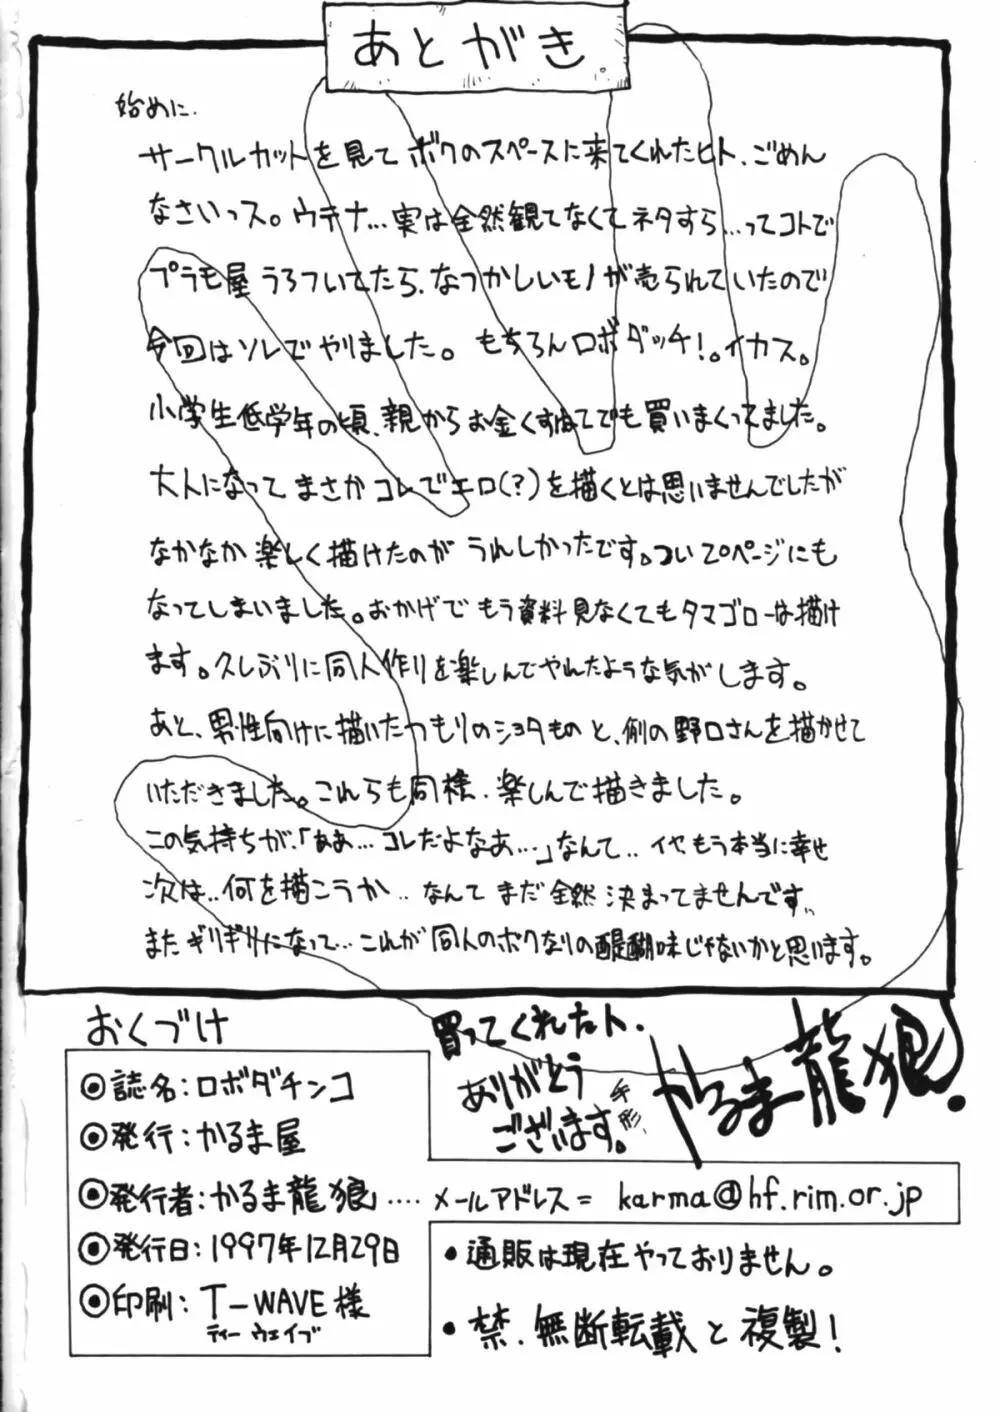 あとがき
始めに.
サークルカットを見てボクのスペースに来てくれたヒト、ごめん
なさいっス。ウテナ…実は全然観てなくてネタすら…ってコトで
プラモ屋うろついてたら、なつかしいモノが売られていたので
今回はソレでやりました。もちろんロボダッチ!。イカス。
小学生低学年の頃、親からお金くすねてでも買いまくってました。
大人になってまさかコレでエロ(?)を描くとは思いませんでしたが
なかなか楽しく描けたのがうれしかったです。ついて20ページにも
なってしまいました。おかげでもう資料見なくてもタマゴローは描け
ます。久しぶりに同人作りを楽しんでやれたような気がします。
あと、男性向けに描いたつもりのショタものと、例の野口さんを描かせて
いただきました。これらも同様、楽しんで描きました。
この気持ちが、「ああ…コレだよなあ…」なんて‥イヤもう本当に幸せ
次は‥何を描こうか‥なんてまだ全然決まってませんです‥
またギリギリになって…これが同人のボクなりの醍醐味じゃないかと思います。
おくづけ
買ってくれたヒト、
ありがとう
ございます。
手形、
かるま龍狼。
◎誌名:ロボダチンコ
◎発行:かるま屋
◎発行者:かるま龍狼 ‥‥ メールアドレス= karma@hf.rim.or.jp
◎発行日:1997年12月29日
◎印刷:T-WAVE様
ティーウェイブ
・通販は現在やっておりません。
・禁、無断転載と複製!